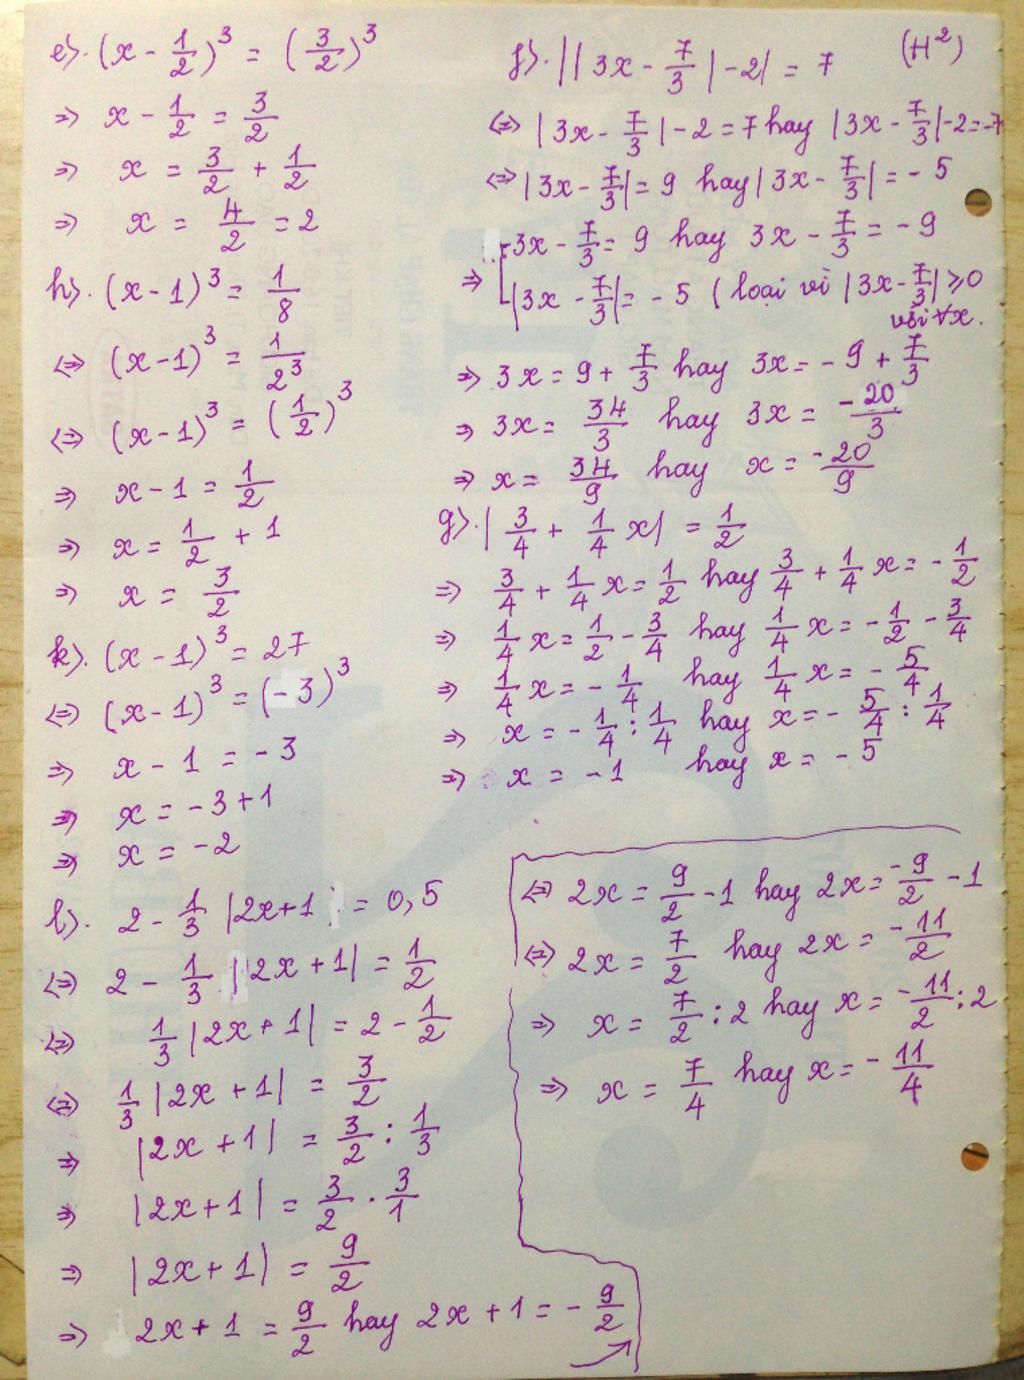 e). (x - 1/2)³ = (3/2)³
⇒ x - 1/2 = 3/2
⇒ x = 3/2 + 1/2
⇒ x = 4/2 = 2
h). (x - 1)³ = 1/8
⇔ (x - 1)³ = 1/2³
⇔ (x - 1)³ = (1/2)³
⇒ x - 1 = 1/2
⇒ x = 1/2 + 1
⇒ x = 3/2
k). (x - 1)³ = 27
⇔ (x - 1)³ = (-3)³
⇒ x - 1 = -3
⇒ x = -3 + 1
⇒ x = -2
l). 2 - 1/3 |2x + 1 = 0,5
⇔ 2 - 1/3 |2x + 1| = 1/2
⇔ 1/3 |2x + 1| = 2 - 1/2
⇔ 1/3 |2x + 1| = 3/2
⇒ |2x + 1| = 3/2 : 1/3
⇒ |2x + 1| = 3/2 . 3/1
⇒ |2x + 1| = 9/2
⇒ 2x + 1 = 9/2 hay 2x + 1 = -9/2
(H²)
f). ||3x - 7/3| - 2| = 7
⇔ |3x - 7/3| - 2 = 7 hay |3x - 7/3| - 2 = -7
⇔ |3x - 7/3| = 9 hay |3x - 7/3| = -5
⇒ [3x - 7/3 = 9 hay 3x - 7/3 = -9
|3x - 7/3| = -5 (loại vì |3x - 7/3| ⩾ 0
với ∀x.
⇒ 3x = 9 + 7/3 hay 3x = -9 + 7/3
⇒ 3x = 34/3 hay 3x = -20/3
⇒ x = 34/9 hay x = -20/9
g). |3/4 + 1/4 x| = 1/2
⇒ 3/4 + 1/4 x = 1/2 hay 3/4 + 1/4 x = -1/2
⇒ 1/4 x = 1/2 - 3/4 hay 1/4 x = -1/2 - 3/4
⇒ 1/4 x = -1/4 hay 1/4 x = -5/4
⇒ x = -1/4 : 1/4 hay x = -5/4 : 1/4
⇒ x = -1 hay x = -5
⇔ 2x = 9/2 - 1 hay 2x = -9/2 - 1
⇔ 2x = 7/2 hay 2x = -11/2
⇒ x = 7/2 : 2 hay x = -11/2 : 2
⇒ x = 7/4 hay x = -11/4